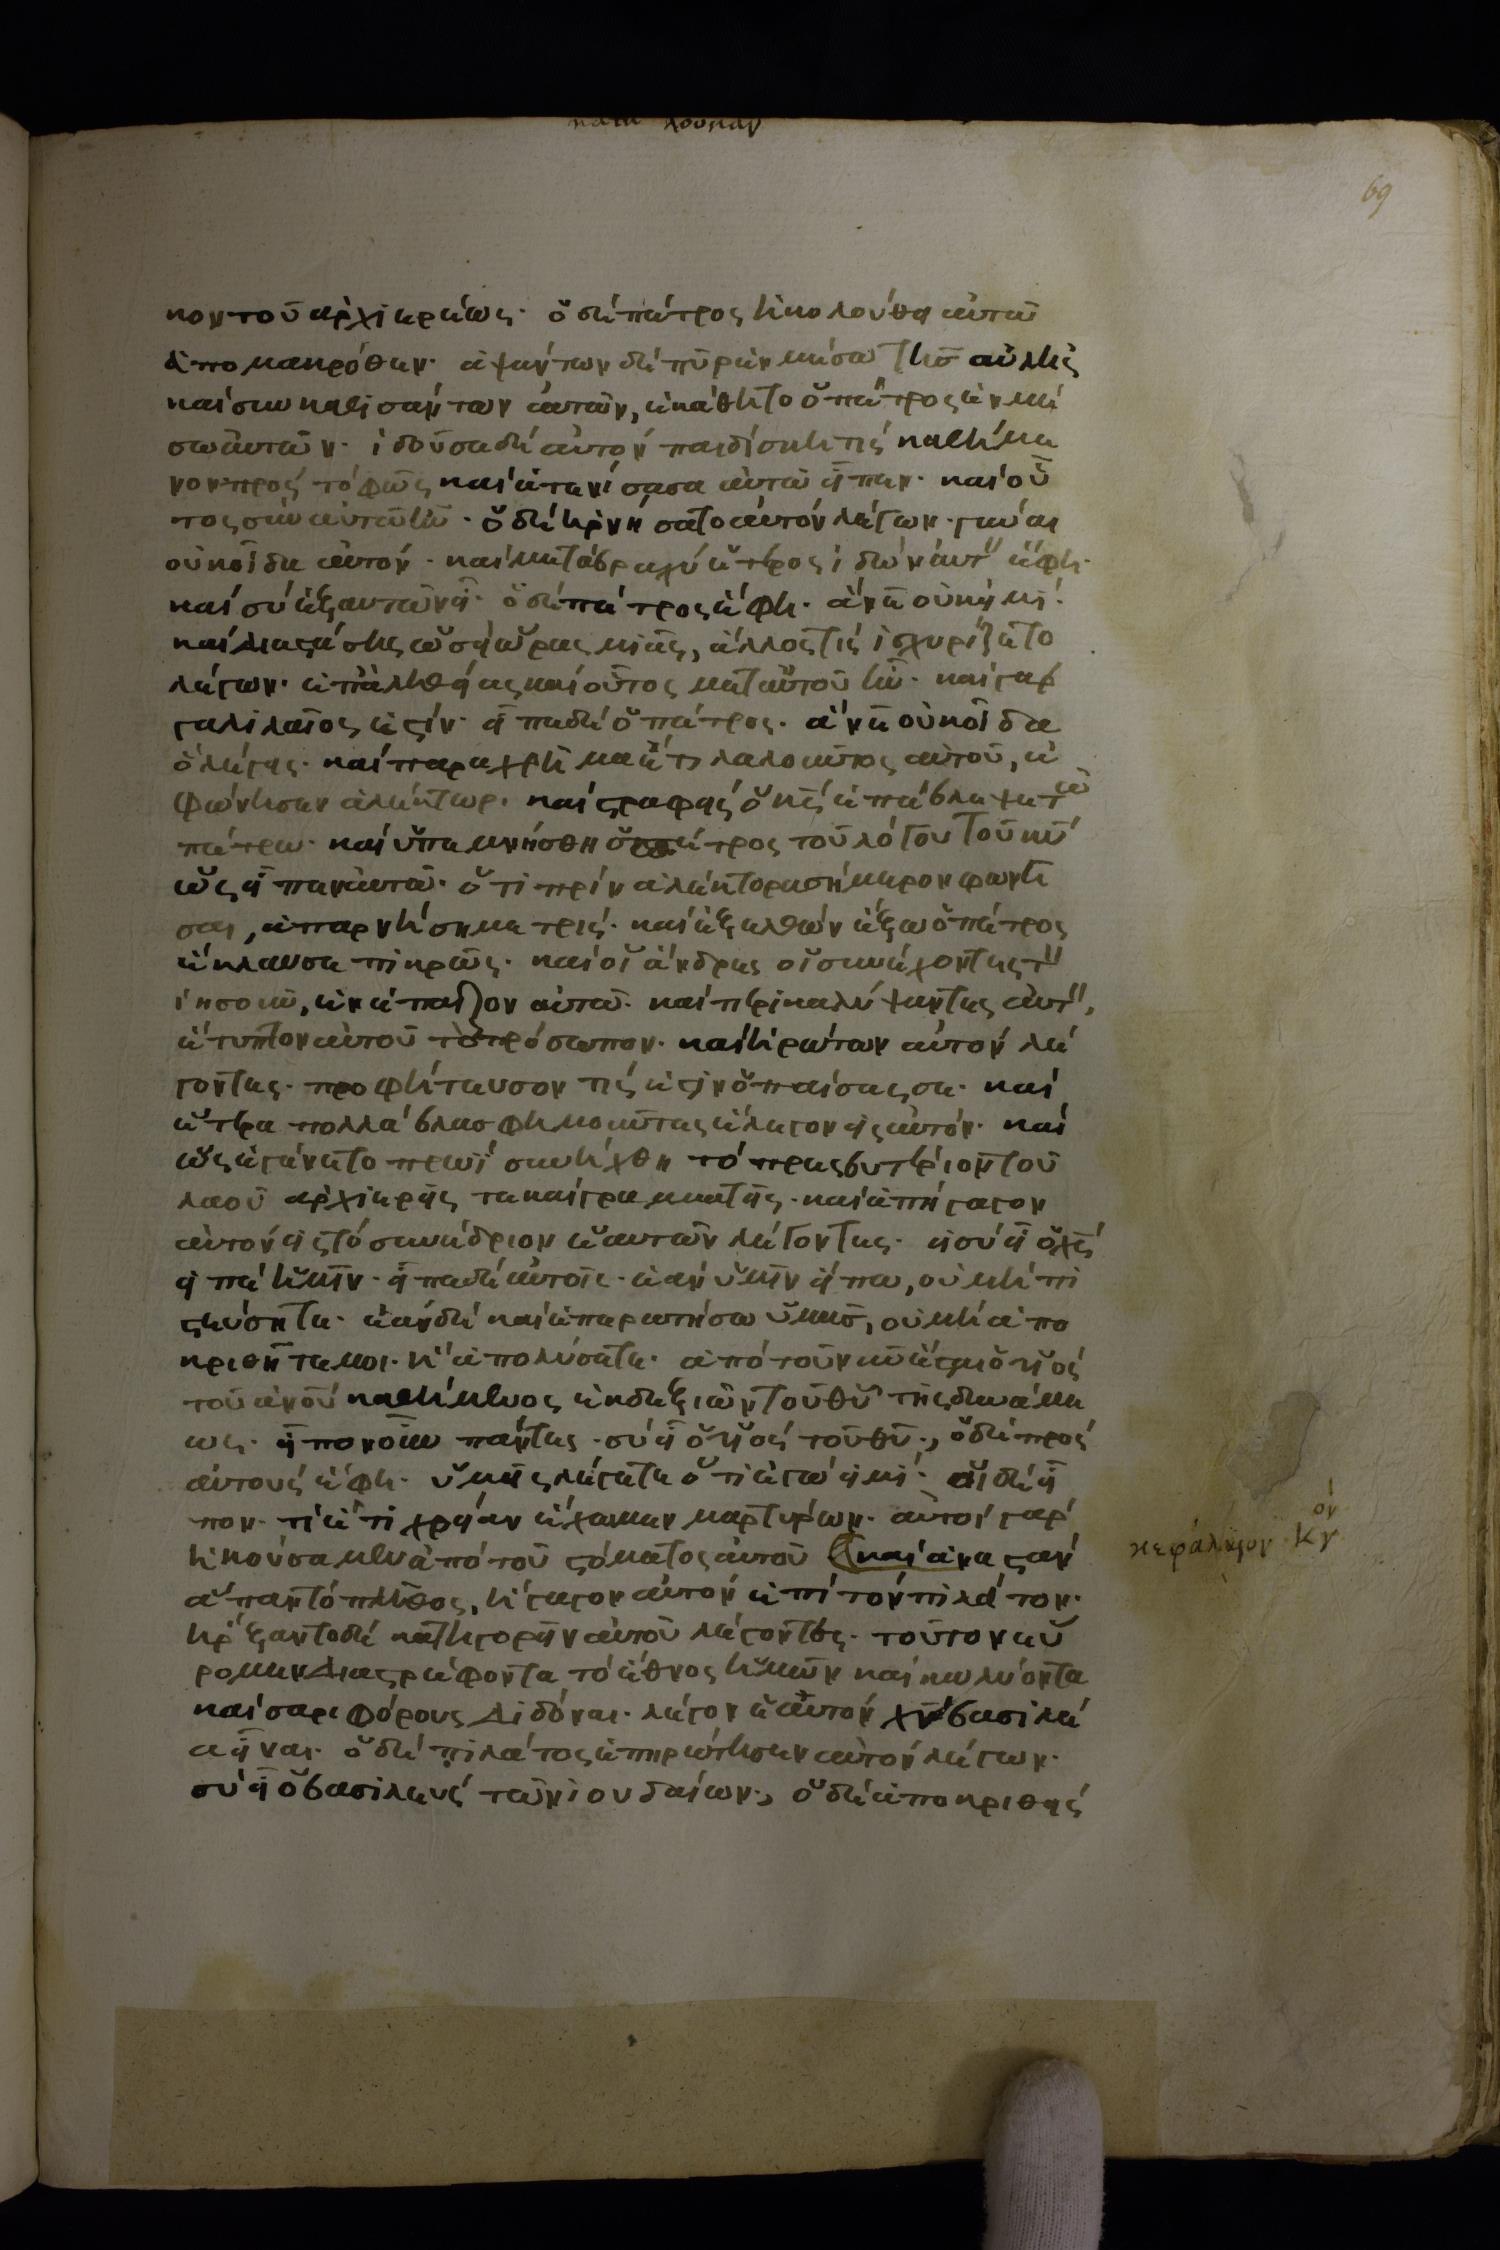 κατὰ λουκαν
69
κον τοῦ ἀρχιερέως· ὁ δὲ πέτρος ἠκολούθει αὐτῶ
ἀπο μακρόθεν· ἁψάντων δὲ πῦρ ἐν μέσω τῆσ αὐλῆς
καὶ συγκαθισάντων αὐτῶν, ἐκάθητο ὁ πέτρος ἐν μέ
σω αὐτῶν· ἰδοῦσα δὲ αὐτὸν παιδίσκη τὶς καθήμε
νον πρὸς τὸ φῶς καὶ ἀτενίσασα αὐτῶ εἶπεν· καὶ οὗ
τος σὺν αὐτῶ ἦν· ὁ δὲ ἠρνήσατο αὐτὸν λέγων· γύναι
οὐκ οἶδα αὐτόν· καὶ μετὰ βραχὺ ἕτερος ἰδὼν αὐτὸν ἔφη·
καὶ σὺ ἐξ αυτῶν εἶ· ὁ δὲ πέτρος ἔφη· ἄνε οὐκ εἰμί·
καὶ διαστάσης ὡσεὶ ὥρας μιᾶς, ἄλλος τὶς ἰσχυρίζετο
λέγων· ἐπ' ἀληθείας καὶ οὗτος μετ αὐτοῦ ἦν· καὶ γαρ
γαλιλαῖος ἐστίν· εἶπε δὲ ὁ πέτρος· ἄνε οὐκ οἶδα
ὃ λέγεις· καὶ παραχρῆμα ἔτι λαλοῦντος αὐτοῦ, ἐ
φώνησεν ἀλέκτωρ· καὶ στραφεὶς ὁ κς ἐπέβλεψε τῶ
πέτρω· καὶ ὑπεμνήσθη ὁ πέτρος τοῦ λόγου τοῦ κυ
ὡς εἶπεν αὐτῶ· ὅτι πρὶν ἀλέκτορα σήμερον φωνῆ
σαι, ἀπαρνήση με τρίς· καὶ ἐξελθὼν ἔξω ὁ πέτρος
ἔκλαυσε πικρῶς· καὶ οἱ ἄνδρες οἱ συνέχοντες τὸν
ἰησοῦν, ἐνέπαιζον αὐτῶ· καὶ περικαλύψαντες αὐτὸν,
ἔτυπτον αὐτοῦ τὸ πρόσωπον· καὶ ἠρώτων αὐτὸν λέ
γοντες· προφήτευσον τίς ἐστιν ὁ παίσας σε· καὶ
ἕτερα πολλὰ βλασφημοῦντες ἔλεγον εἰς αὐτόν· καὶ
ὡς ἐγένετο πρωὶ συνήχθη τὸ πρεσβυτέριον τοῦ
λαοῦ ἀρχιερεῖς τε καὶ γραμματεῖς· καὶ ἀπήγαγον
αὐτὸν εἰς τὸ συνέδριον ἑαυτῶν λέγοντες· εἰ σὺ εἶ ὁ χς
εἰπὲ ἡμῖν· εἶπε δὲ αὐτοῖς· ἐὰν ὑμῖν εἴπω, οὐ μὴ πι
στεύσητε· ἐὰν δὲ καὶ ἐπερωτήσω ὑμᾶσ, οὐ μὴ ἀπο
κριθῆτε μοι· ἢ ἀπολύσητε· ἀπὸ τοῦ νῦν ἔσται ὁ υἱὸς
τοῦ ἀνοῦ καθήμενος ἐκ δεξιῶν τοῦ θῦ τῆς δυνάμε
ως· εἶπον οὖν πάντες· σὺ εἶ ὁ υἱὸς τοῦ θῦ·, ὁ δὲ πρὸς
αὐτοὺς ἔφη· ὑμεῖς λέγετε ὅτι ἐγὼ εἰμί· οἱ δὲ εἶ
πον· τί ἔτι χρείαν ἔχομεν μαρτύρων· αὐτοὶ γὰρ
ἠκούσαμεν ἀπὸ τοῦ στόματος αὐτοῦ καὶ ἀναστὰν
ἅπαν τὸ πλῆθος, ἤγαγον αὐτὸν ἐπὶ τὸν πιλάτον·
κεφάλαιον κγ ον
ἤρξαντο δὲ κατηγορεῖν αὐτοῦ λέγοντες· τοῦτον εὕ
ρομεν διαστρέφοντα τὸ ἔθνος ἡμῶν καὶ κωλύοντα
καίσαρι φόρους διδόναι· λέγοντα ἑαυτὸν χν βασιλέ
α εἶναι· ὁ δὲ πιλάτος ἐπηρώτησεν αὐτὸν λέγων·
σὺ εἶ ὁ βασιλεὺς τῶν ἰουδαίων·, ὁ δὲ ἀποκριθεὶς